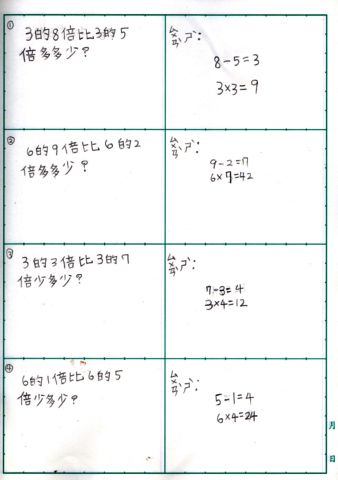 ①
3的8倍比3的5
倍多多少?
ㄙㄨㄢˋ ㄕˋ:
8-5=3
3×3=9
②
6的9倍比6的2
倍多多少?
ㄙㄨㄢˋ ㄕˋ:
9-2=7
6×7=42
③
3的3倍比3的7
倍少多少?
ㄙㄨㄢˋ ㄕˋ:
7-3=4
3×4=12
④
6的1倍比6的5
倍少多少?
ㄙㄨㄢˋ ㄕˋ:
5-1=4
6×4=24
月
日